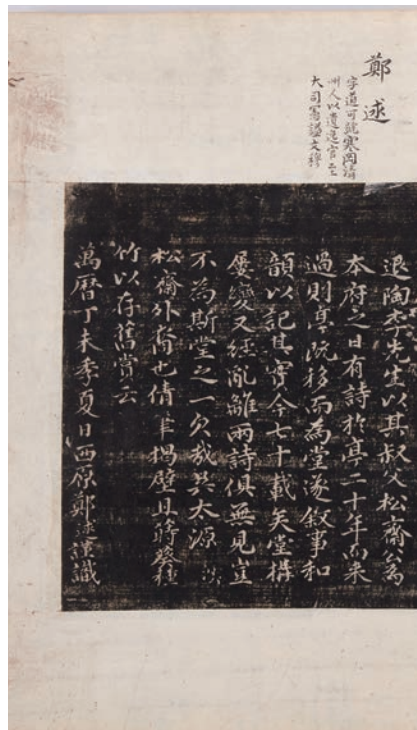 鄭逑
字道可號寒岡清
州人以遺逸官止
大司憲諡文穆
退陶李先生以其叔父松齋翁為
本府之日有詩於亭二十年而来
過則其既移而為堂遂叙事和
韻以記其實今七十載矣堂構
屢變又經亂離兩詩俱無見豈
不為斯堂之一欠哉太源
松齋外裔也倩筆揭壁且蒔葵種
竹以存舊賞云
萬曆丁未季夏日西原鄭逑謹識